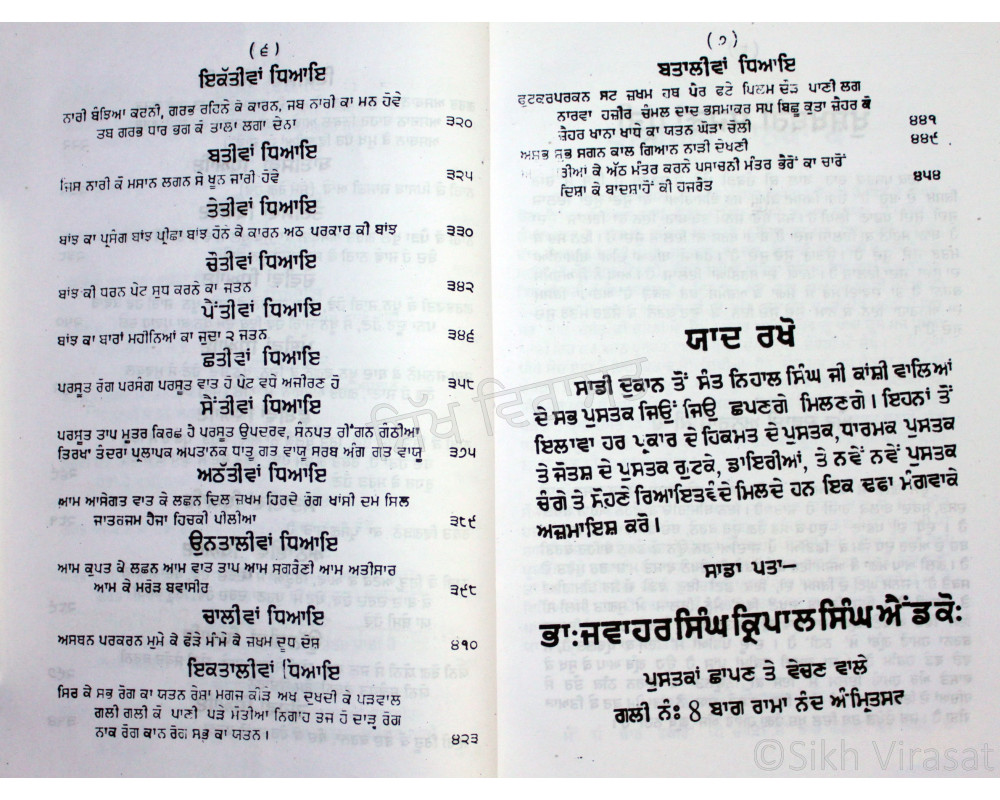 (੬)
ਇਕੱਤੀਵਾਂ ਧਿਆਇ
ਨਾਰੀ ਬੰਝਿਆ ਕਰਨੀ, ਗਰਭ ਰਹਿਨੇ ਕੇ ਕਾਰਨ, ਜਬ ਨਾਰੀ ਕਾ ਮਨ ਹੋਵੇ
ਤਬ ਗਰਭ ਧਾਰ ਭਗ ਕੋ ਤਾਲਾ ਲਗਾ ਦੇਨਾ ੩੨੦
ਬਤੀਵਾਂ ਧਿਆਇ
ਜਿਸ ਨਾਰੀ ਕੋ ਮਸਾਨ ਲਗਨ ਸੇ ਖੂਨ ਨਾਰੀ ਹੋਵੇ ੩੨੫
ਤੇਤੀਵਾਂ ਧਿਆਇ
ਬਾਂਝ ਕਾ ਪ੍ਰਸੰਗ ਬਾਂਝ ਪ੍ਰੀਛਾ ਬਾਂਝ ਹੋਨੇ ਕੇ ਕਾਰਨ ਅਠ ਪਰਕਾਰ ਕੀ ਬਾਂਝ ੩੩੦
ਚੌਤੀਵਾਂ ਧਿਆਇ
ਬਾਂਝ ਕੀ ਧਰਨ ਪੇਟ ਸੁਧ ਕਰਨੇ ਕਾ ਜਤਨ ੩੪੨
ਪੈਂਤੀਵਾਂ ਧਿਆਇ
ਬਾਂਝ ਕਾ ਬਾਰਾਂ ਮਹੀਨਿਆਂ ਕਾ ਜੁਦਾ ੨ ਜਤਨ ੩੪੬
ਛਤੀਵਾਂ ਧਿਆਇ
ਪਰਸੂਤ ਰੋਗ ਪਰਸੰਗ ਪਰਸੂਤ ਵਾਤ ਹੋ ਪੇਟ ਵਧੇ ਅਜੀਰਣ ਹੋ ੩੫੮
ਸੈਂਤੀਵਾਂ ਧਿਆਇ
ਪਰਸੂਤ ਤਾਪ ਮੂਤਰ ਕਿਰਛ ਹੈ ਪਰਸੂਤ ਉਪਦਰਵ, ਸੰਨਪਤ ਗੰਠੀਆ
ਤਿਰਖਾ ਤੰਦਰਾ ਪ੍ਰਲਾਪਕ ਅਪਤਾਨਕ ਧਾਤੂ ਗਤ ਵਾਯੂ ਸਰਬ ਅੰਗ ਗਤ ਵਾਯੂ ੩੭੫
ਅਠੱਤੀਵਾਂ ਧਿਆਇ
ਆਮ ਆਸੇਗਤ ਵਾਤ ਕੇ ਲਛਨ ਦਿਲ ਜਖਮ ਹਿਰਦੇ ਰੋਗ ਖਾਂਸੀ ਦਮ ਸਿਲ
ਹੈਜਾ ਹਿਚਕੀ ਪੀਲੀਆ ੩੮੯
ਉਨਤਾਲੀਵਾਂ ਧਿਆਇ
ਆਮ ਕੁਪਤ ਕੇ ਲਛਨ ਆਮ ਵਾਤ ਤਾਪ ਆਮ ਸੰਗਰੇਣੀ ਆਮ ਅਤੀਸਾਰ
ਆਮ ਕੇ ਮਰੋੜ ਬਵਾਸੀਰ ੩੯੮
ਚਾਲੀਵਾਂ ਧਿਆਇ
ਅਸਥਨ ਪਰਕਰਨ ਮੁਮੇ ਕੇ ਫੋੜੇ ਮੰਮੇ ਕੇ ਜਖਮ ਦੂਧ ਦੋਸ਼ ੪੧੦
ਇਕਤਾਲੀਵਾਂ ਧਿਆਇ
ਸਿਰ ਕੇ ਸਭ ਰੋਗ ਕਾ ਯਤਨ ਰੇਸ਼ਾ ਮਗਜ ਕੀੜੇ ਅਖ ਦੁਖਦੀ ਕੇ ਪੜਵਾਲ
ਗਲੀ ਗਲੀ ਕੋ ਪਾਣੀ ਪੜੇ ਮੋਤੀਆ ਨਿਗਾਹ ਤਜ ਹੋ ਦਾੜ੍ਹ ਰੋਗ
ਨਾਕ ਰੋਗ ਕਾਨ ਰੋਗ ਸਭ ਕਾ ਯਤਨ। ੪੨੩
(੭)
ਬਤਾਲੀਵਾਂ ਧਿਆਇ
ਫੁਟਕਰਪਰਕਨ ਸਟ ਜ਼ੁਖਮ ਹਥ ਪੈਰ ਫਟੇ ਪਿਲਮ ਚੋੜ ਪਾਣੀ ਲਗ
ਨਾਰਵਾ ਹਜ਼ੀਰ ਚੰਮਲ ਦਾਦ ਭਸਮਾਕਰ ਸਪ ਬਿਛੂ ਕੁਤਾ ਜ਼ੈਹਰ ਕੋ
ਜ਼ੈਹਰ ਖਾਨਾ ਖਾਧੇ ਕਾ ਯਤਨ ਘੋੜਾ ਚੋਲੀ ੪੪੧
ਅਸ਼ਭ ਸੁਭ ਸਗਨ ਕਾਲ ਗਿਆਨ ਨਾੜੀ ਦੇਖਣੀ ੪੪੯
ਕੇ ਅੱਠ ਮੰਤਰ ਕਰਨੇ ਪਸਾਚਨੀ ਮੰਤਰ ਭੈਰੋਂ ਕਾ ਚਾਰੋਂ
ਦਿਸ਼ਾ ਕੇ ਬਾਦਸਾਹੋਂ ਕੀ ਹਜਰੈਤ ੪੫੪
ਯਾਦ ਰਖੋ
ਸਾਡੀ ਦੁਕਾਨ ਤੋਂ ਸੰਤ ਨਿਹਾਲ ਸਿੰਘ ਜੀ ਕਾਂਸ਼ੀ ਵਾਲਿਆਂ
ਦੇ ਸਭ ਪੁਸਤਕ ਜਿਉਂ ਜਿਉਂ ਛਪਣਗੇ ਮਿਲਣਗੇ। ਇਹਨਾਂ ਤੋਂ
ਇਲਾਵਾ ਹਰ ਪ੍ਰਕਾਰ ਦੇ ਹਿਕਮਤ ਦੇ ਪੁਸਤਕ, ਧਾਰਮਕ ਪੁਸਤਕ
ਤੇ ਜੋਤਸ਼ ਦੇ ਪੁਸਤਕ ਗੁਟਕੇ, ਡਾਇਰੀਆਂ, ਤੇ ਨਵੇਂ ਨਵੇਂ ਪੁਸਤਕ
ਚੰਗੇ ਤੇ ਸੋਹਣੇ ਰਿਆਇਤਵੰਦੇ ਮਿਲਦੇ ਹਨ ਇਕ ਦਫਾ ਮੰਗਵਾਕੇ
ਅਜ਼ਮਾਇਸ਼ ਕਰੋ।
ਸਾਡਾ ਪਤਾ—
ਭਾ: ਜਵਾਹਰ ਸਿੰਘ ਕ੍ਰਿਪਾਲ ਸਿੰਘ ਐਂਡ ਕੋ:
ਪੁਸਤਕਾਂ ਛਾਪਣ ਤੇ ਵੇਚਣ ਵਾਲੇ
ਗਲੀ ਨੰ: 8 ਬਾਗ ਰਾਮਾ ਨੰਦ ਅੰਮ੍ਰਿਤਸਰ
ਸਿੱਖ ਵਿਰਾਸਤ
©Sikh Virasat